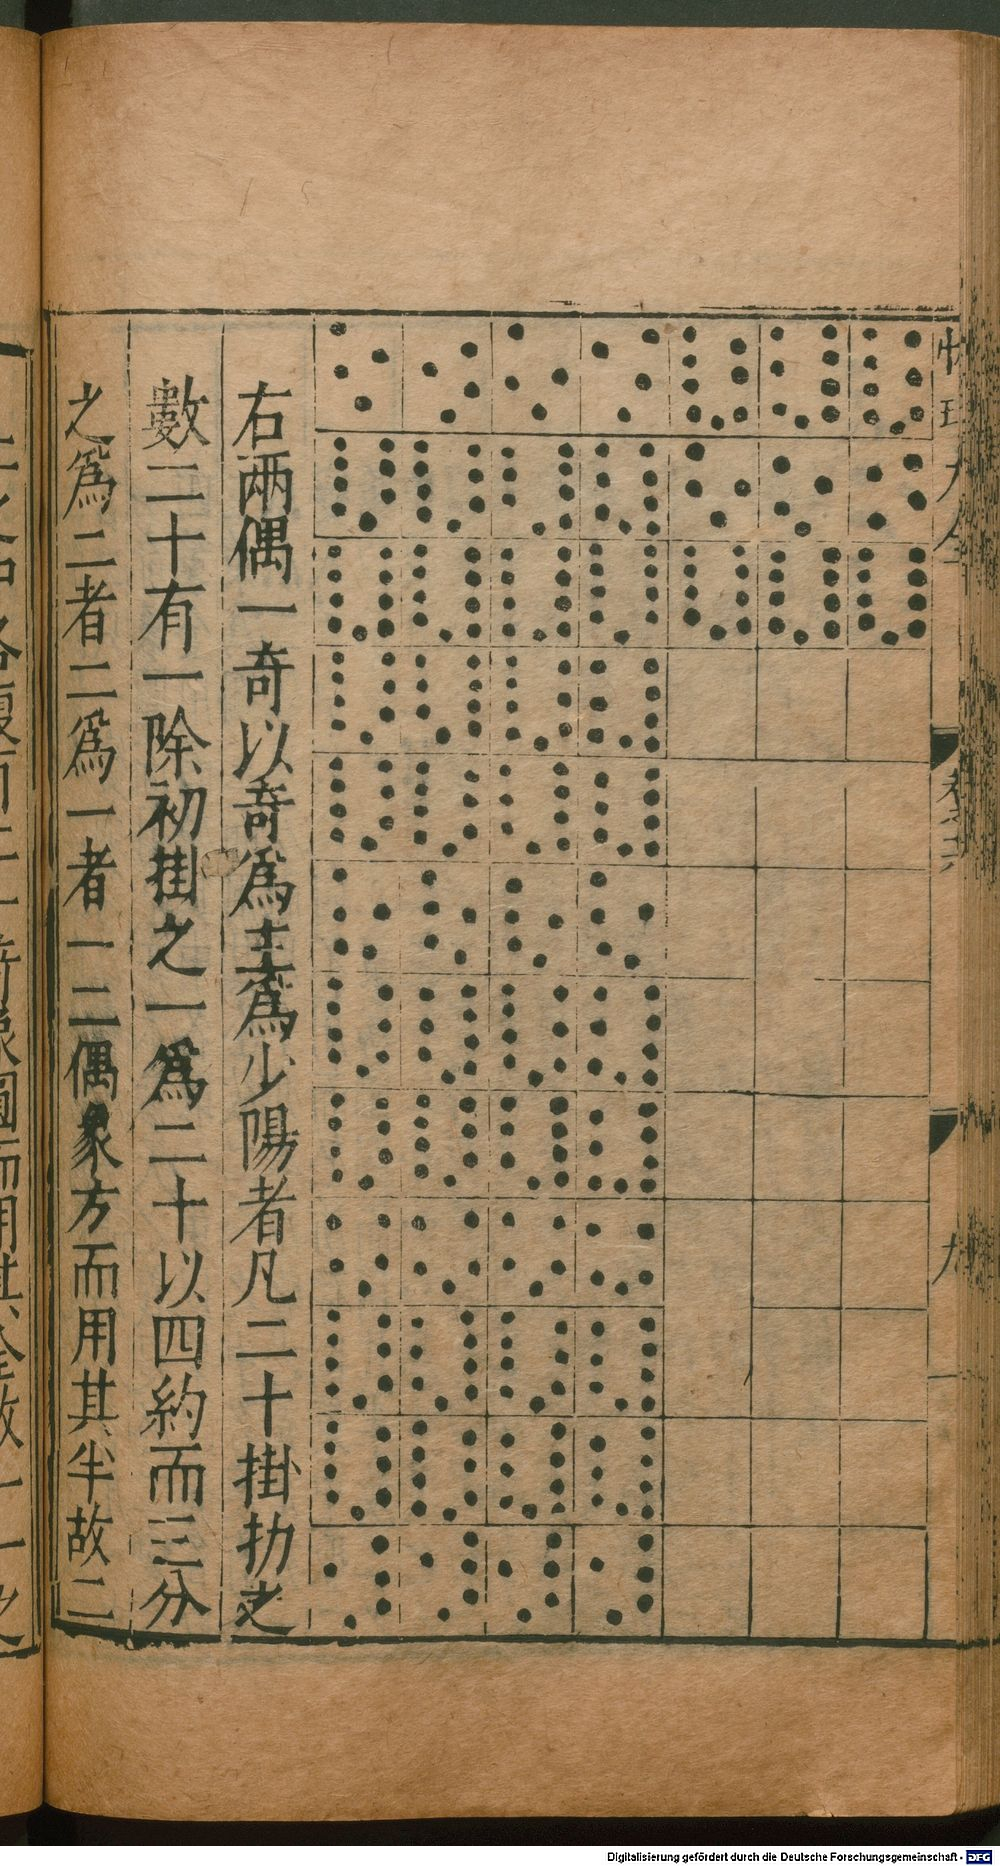 性理大全
卷之十六
九
右兩偶一奇以奇爲主爲少陽者凡二十掛扐之
數二十有一除初掛之一爲二十以四約而三分
之爲二者二爲一者一二偶象方而用其半故二
Digitalisierung gefördert durch die Deutsche Forschungsgemeinschaft - DFG